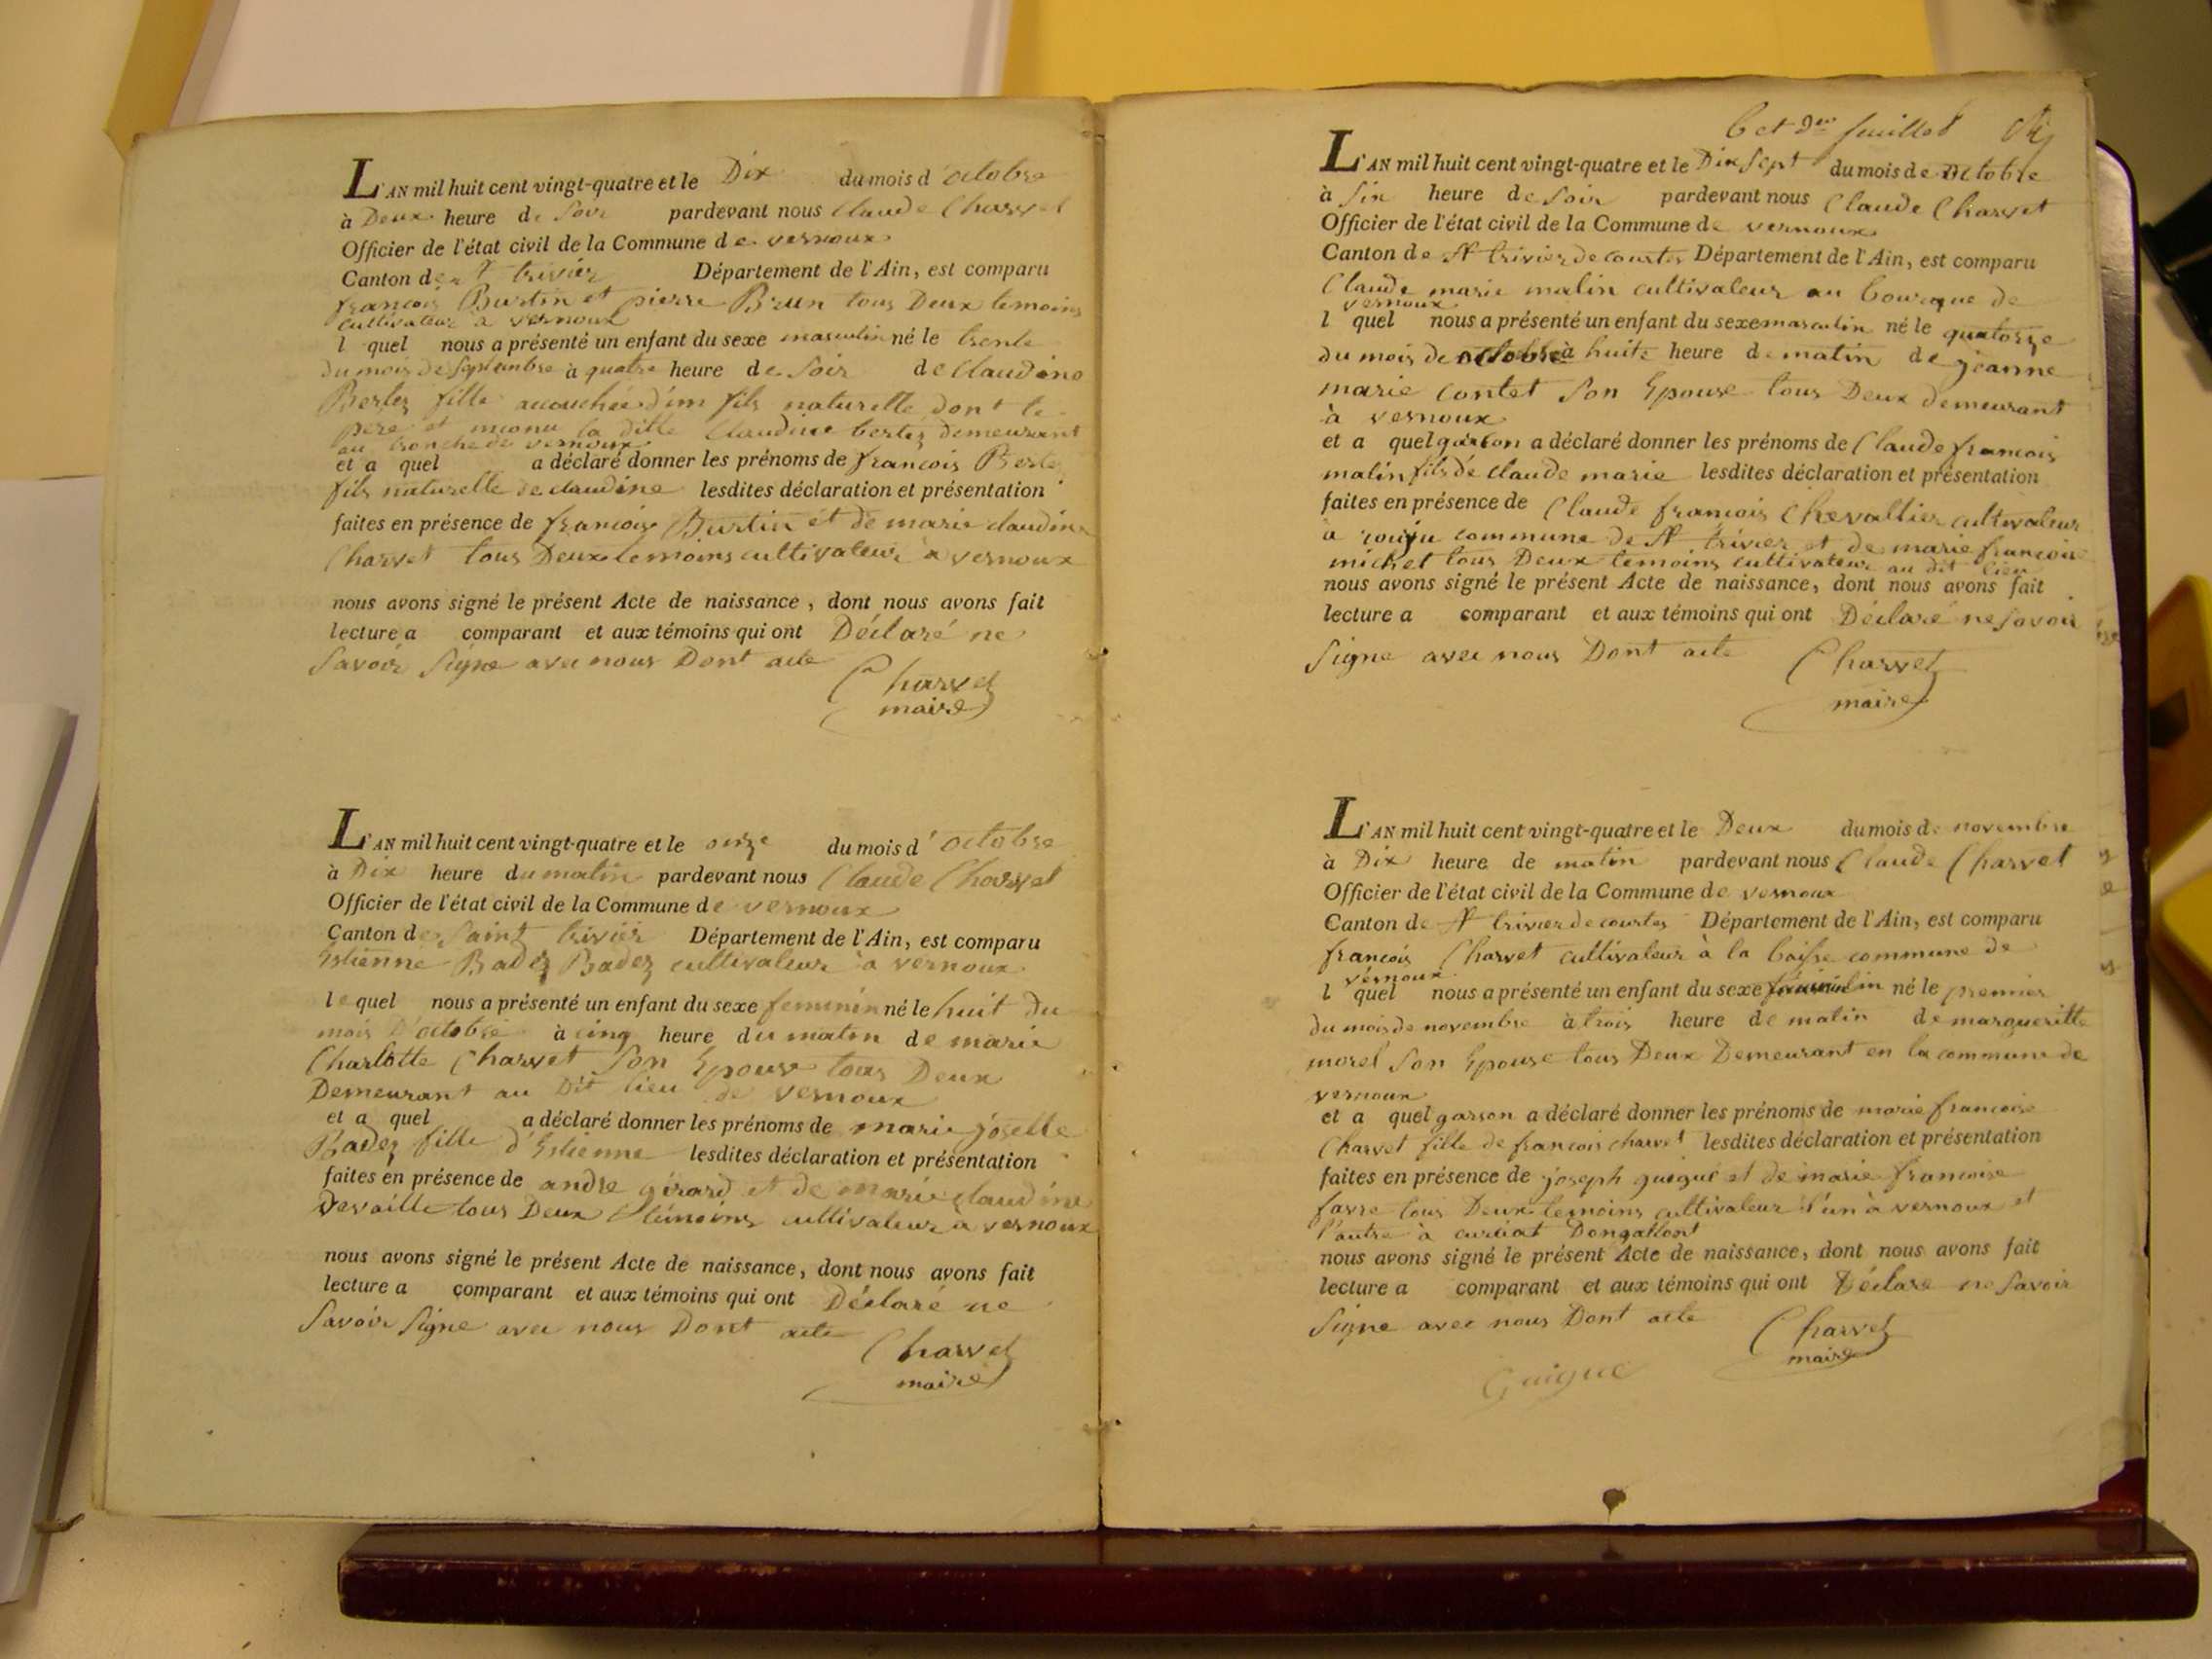 L'AN mil huit cent vingt-quatre et le Dix du mois d'octobre
à Deux heure de Soir pardevant nous Claude Charvet
Officier de l'état civil de la Commune de vernoux
Canton de St trivier Département de l'Ain, est comparu
françois Burtin et pierre Brun tous Deux temoins
cultivateur a vernoux
l quel nous a présenté un enfant du sexe masculin né le trente
du mois de Septembre à quatre heure de Soir de Claudine
Bertez fille accouchée d'un fils naturelle dont le
pere et inconu la ditte Claudine bertez demeurant
au tronche de vernoux
et a quel a déclaré donner les prénoms de françois Berte
fils naturelle de claudine lesdites déclaration et présentation
faites en présence de françois Burtin et de marie claudine
Charvet tous Deux temoins cultivateur a vernoux
nous avons signé le présent Acte de naissance, dont nous avons fait
lecture a comparant et aux témoins qui ont Déclaré ne
Savoir Signe avec nous Dont acte
Charvet
maire
L'AN mil huit cent vingt-quatre et le onze du mois d'octobre
à Dix heure du matin pardevant nous Claude Charvet
Officier de l'état civil de la Commune de vernoux
Canton de Saint trivier Département de l'Ain, est comparu
Estienne Badez Badez cultivateur a vernoux
le quel nous a présenté un enfant du sexe feminin né le huit du
mois D'octobre à cinq heure du matin de marie
Charlotte Charvet Son Epouse tous Deux
Demeurant au Dit lieu de vernoux
et a quel a déclaré donner les prénoms de marie josette
Badez fille d'Estienne lesdites déclaration et présentation
faites en présence de andre girard et de marie claudine
Devaille tous Deux temoins cultivateur a vernoux
nous avons signé le présent Acte de naissance, dont nous avons fait
lecture a comparant et aux témoins qui ont Déclaré ne
Savoir Signe avec nous Dont acte
Charvet
maire
6 et der feuillet
L'AN mil huit cent vingt-quatre et le Dix Sept du mois de octobre
à Six heure de Soir pardevant nous Claude Charvet
Officier de l'état civil de la Commune de vernoux
Canton de St trivier de courtes Département de l'Ain, est comparu
Claude marie malin cultivateur au de
vernoux
l quel nous a présenté un enfant du sexe masculin né le quatorze
du mois de octobre à huite heure de matin de jeanne
marie contet Son Epouse tous Deux demeurant
à vernoux
et a quel garson a déclaré donner les prénoms de Claude francois
malin fils de claude marie lesdites déclaration et présentation
faites en présence de Claude francois Chevallier cultivateur
a commune de St trivier et de marie francoise
michel tous Deux temoins cultivateur au dit lieu
nous avons signé le présent Acte de naissance, dont nous avons fait
lecture a comparant et aux témoins qui ont Déclaré ne Savoir
Signe avec nous Dont acte
Charvet
maire
L'AN mil huit cent vingt-quatre et le Deux du mois de novembre
à Dix heure de matin pardevant nous Claude Charvet
Officier de l'état civil de la Commune de vernoux
Canton de St trivier de courtes Département de l'Ain, est comparu
francois Charvet cultivateur à la commune de
vernoux
l quel nous a présenté un enfant du sexe né le premier
du mois de novembre à trois heure de matin de margueritte
morel Son Epouse tous Deux Demeurant en la commune de
vernoux
et a quel garson a déclaré donner les prénoms de marie francoise
Charvet fille de francois charvet lesdites déclaration et présentation
faites en présence de joseph guigue et de marie francoise
favre tous Deux temoins cultivateur l'un à vernoux et
l'autre à curciat Dongalon
nous avons signé le présent Acte de naissance, dont nous avons fait
lecture a comparant et aux témoins qui ont Déclare ne Savoir
Signe avec nous Dont acte
Charvet
maire
Guigue